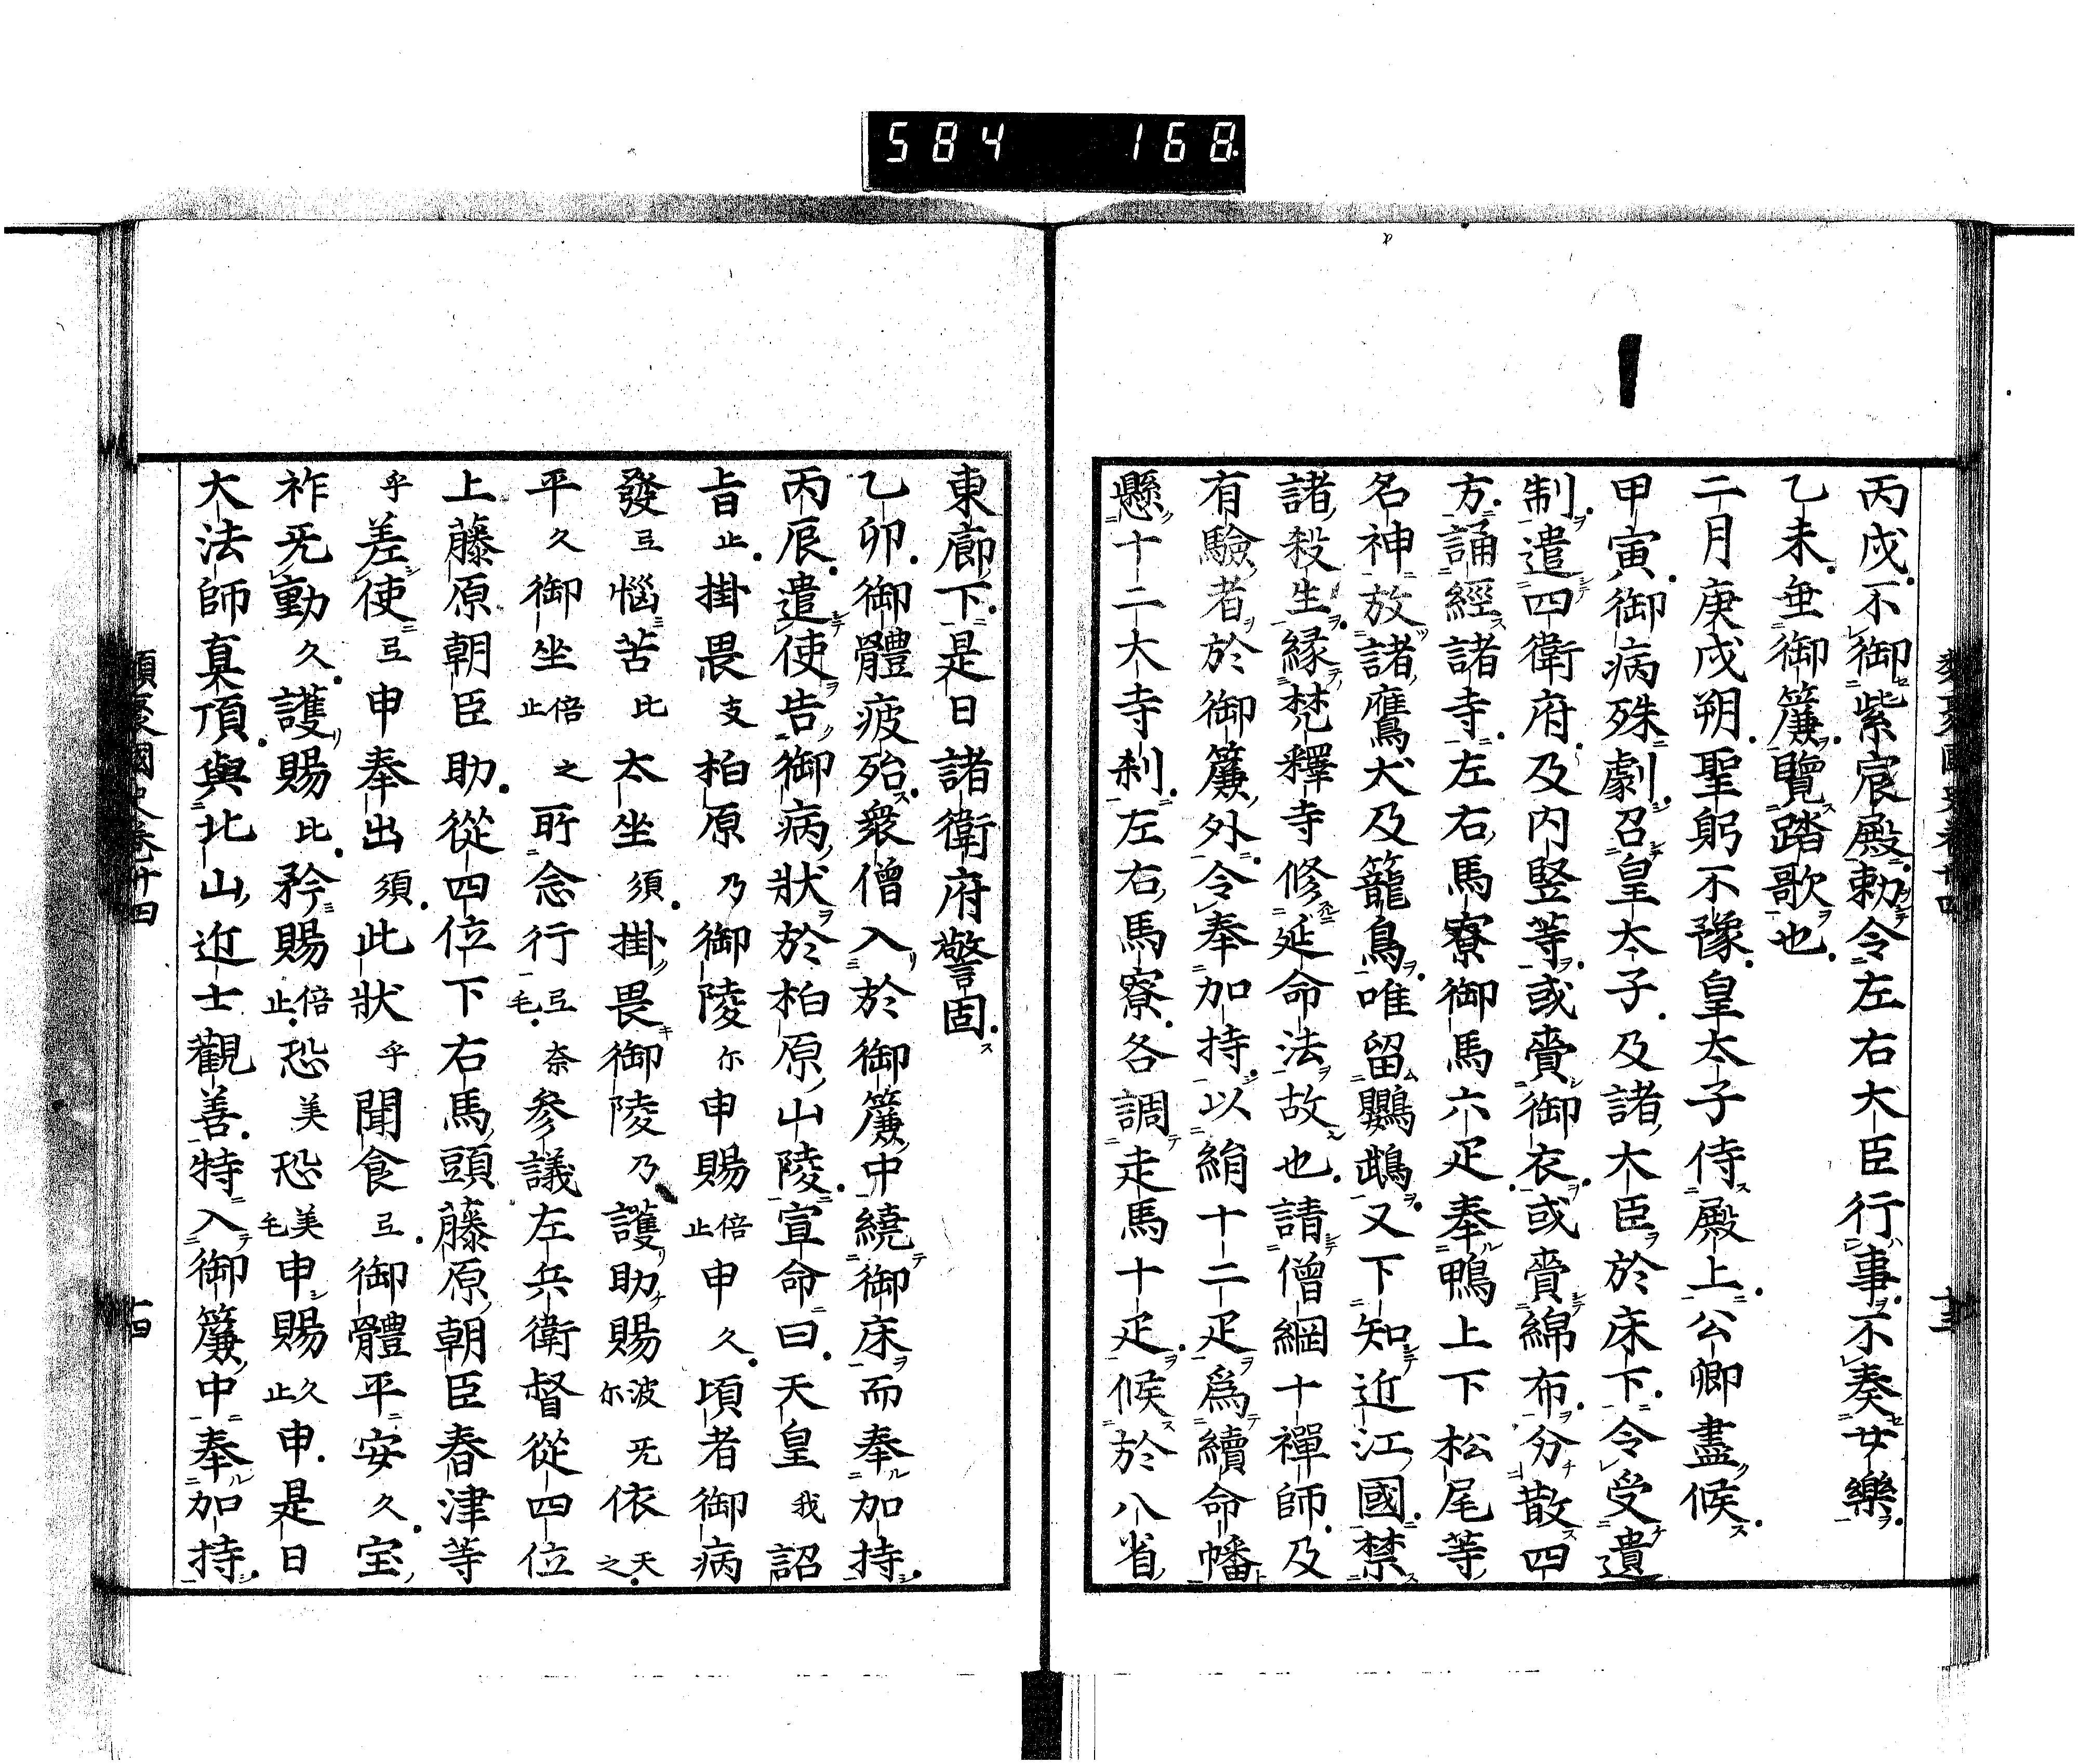 584 168
丙戌不御紫宸殿勅令左右大臣行事不奏女樂
乙未垂御簾覽踏歌也
二月庚戌朔聖躬不豫皇太子侍殿上公卿盡候
甲寅御病殊劇召皇太子及諸大臣於床下令受遺
制遣四衛府及内竪等或賫御衣或賫綿布分散四
方誦經諸寺左右馬寮御馬六疋奉鴨上下松尾等
名神放諸鷹犬及籠鳥唯留鸚鵡又下知近江國禁
諸殺生緣梵釋寺修延命法故也請僧綱十禪師及
有驗者於御簾外令奉加持以絹十二疋爲續命幡
懸十二大寺刹左右馬寮各調走馬十疋候於八省
十三
東廊下是日諸衛府警固
乙卯御體疲殆衆僧入於御簾中繞御床而奉加持
丙辰遣使告御病狀於柏原山陵宣命曰天皇我詔
旨止掛畏支柏原乃御陵尓申賜倍止申久頃者御病
發弖惱苦比太坐須掛畏御陵乃護助賜波尓旡依天之
平久御坐倍止之所念行弖毛奈參議左兵衛督從四位
上藤原朝臣助從四位下右馬頭藤原朝臣春津等
乎差使弖申奉出須此狀乎聞食弖御體平安久宝
祚旡動久護賜比矜賜倍止恐美恐美毛申賜久止申是日
大法師真頂與北山近士觀善特入御簾中奉加持
類聚國史卷廿四
十四